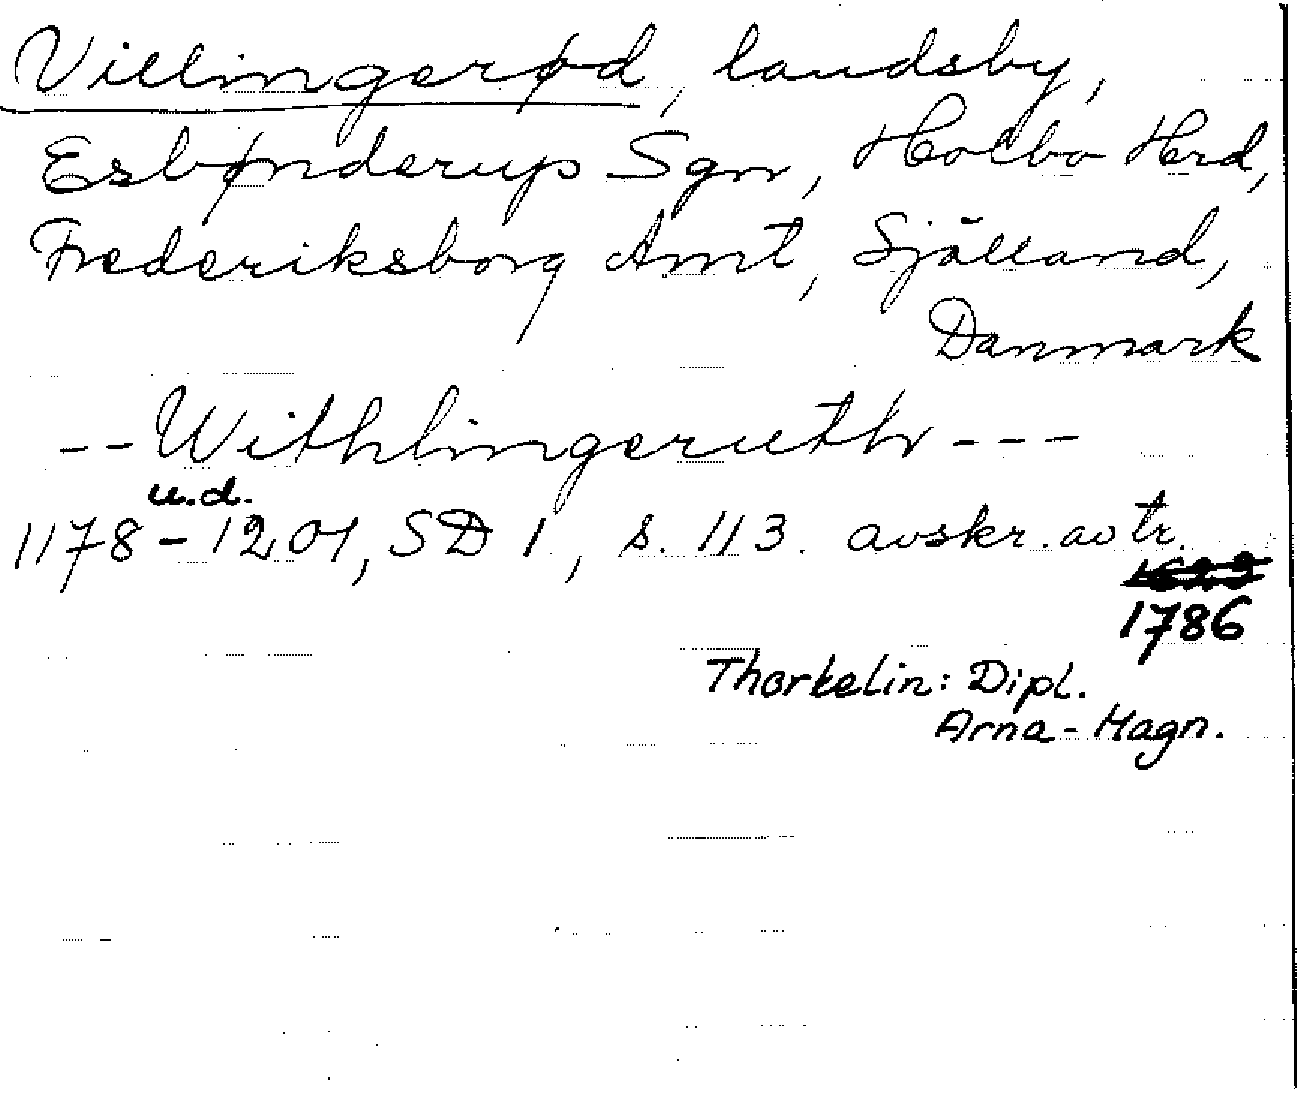 Villingerød, landsby,
Esbønderup Sgn, Holbo Hrd,
Frederiksborg Amt, Själland,
Danmark
-- Withlingeruth ---
u.d.
1178-1201, SD 1, s. 113. avskr. av tr.
1786
Thorkelin: Dipl.
Arna-Magn.